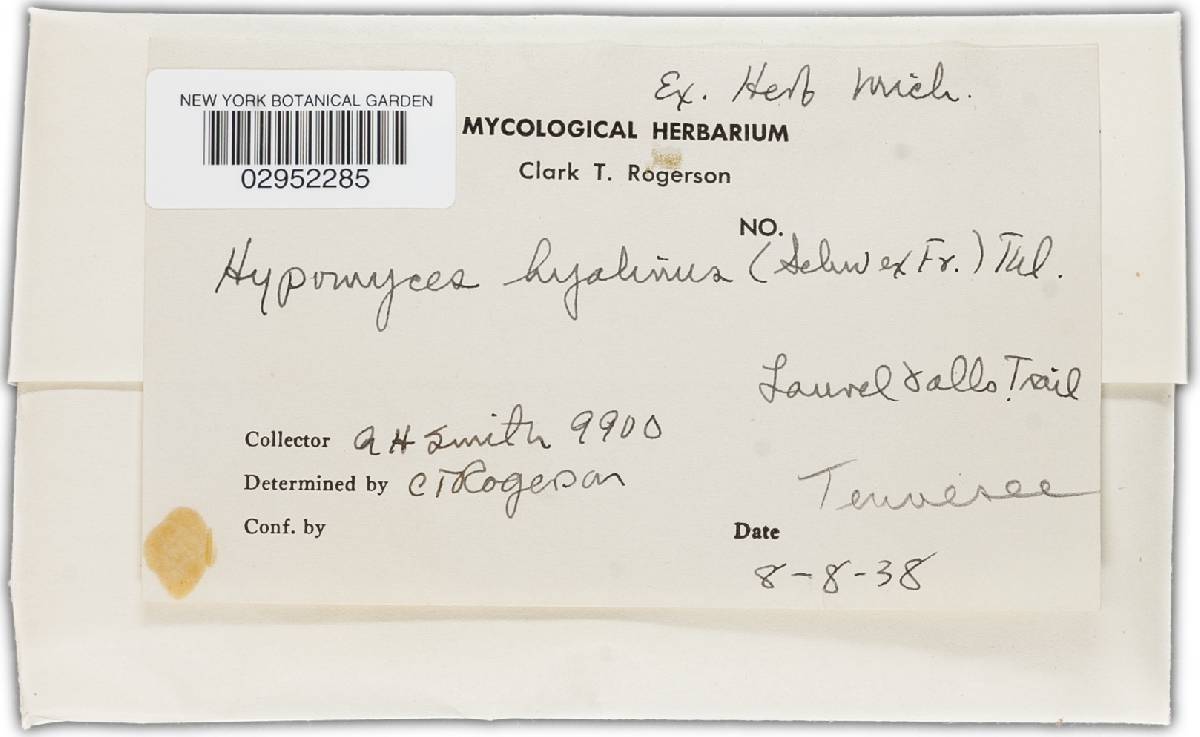 Ex. Herb Mich.
NEW YORK BOTANICAL GARDEN
02952285
MYCOLOGICAL HERBARIUM
Clark T. Rogerson
NO.
Hypomyces hyalinus (Schw ex Fr.) Tul.
Laurel Falls Trail
Collector A H Smith 9900
Determined by CT Rogerson
Tennessee
Conf. by
Date
8-8-38